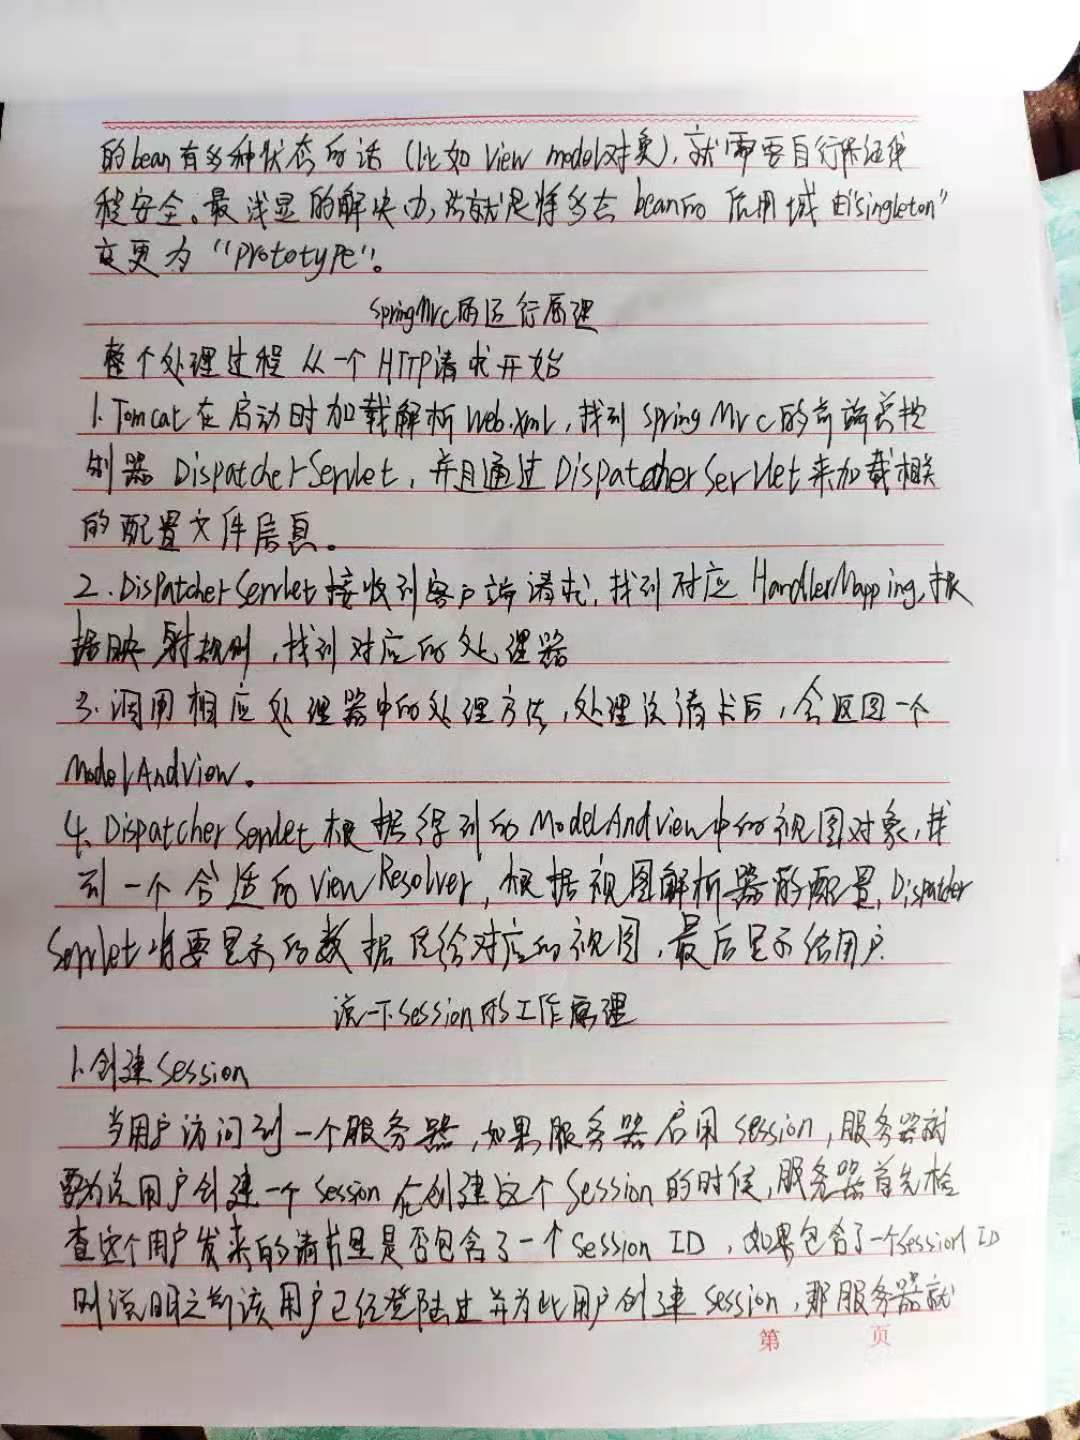 的bean有多种状态的话（比如View model对象），就需要自行保证线
程安全。最浅显的解决办法就是将多态bean的作用域由"singleton"
变更为"prototype"。
SpringMvc的运行原理
整个处理过程从一个HTTP请求开始
1.Tomcat在启动时加载解析Web.xml，找到spring Mvc的前端总控
制器DispatcherServlet，并且通过DispatcherServlet来加载相关
的配置文件信息。
2.DispatcherServlet接收到客户端请求，找到对应HandlerMapping，根
据映射规则，找到对应的处理器
3.调用相应处理器中的处理方法，处理该请求后，会返回一个
ModelAndView。
4.DispatcherServlet根据得到的ModelAndView中的视图对象，找
到一个合适的ViewResolver，根据视图解析器的配置，Dispatcher
Servlet将要显示的数据传给对应的视图，最后显示给用户.
说一下session的工作原理
1.创建Session
当用户访问到一个服务器，如果服务器启用session，服务器就
要为该用户创建一个session在创建这个Session的时候，服务器首先检
查这个用户发来的请求里是否包含了一个Session ID，如果包含了一个session ID
则说明之前该用户已经登陆过并为此用户创建session，那服务器就
第 页